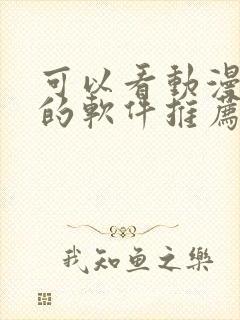 可以看動漫
的軟件推薦
我知鱼之樂